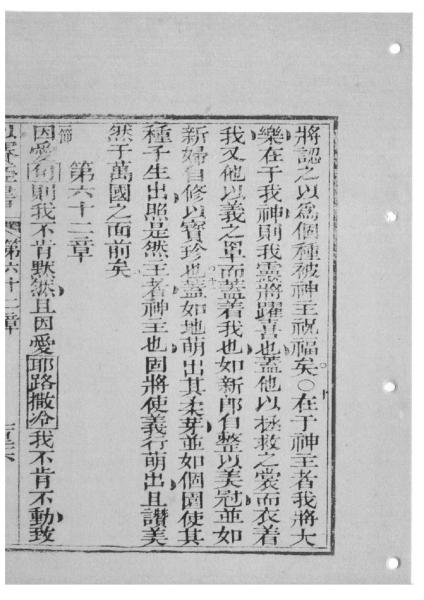 將認之以爲個種被神王祝福矣○在于神主者我將大
樂在于我神則我靈將躍喜也蓋他以拯救之裳而衣着
我又他以義之單而蓋着我也如新郎自整以美冠並如
新婦自修以寳珍也蓋如地萌出其柔芽並如個園使其
種子生出照是然王者神主也固將使義行萌出且讚美
然于萬國之面前矣
第六十二章
一節
因愛旬則我不肯默然且因愛耶路撒冷我不肯不動致
第六十二章